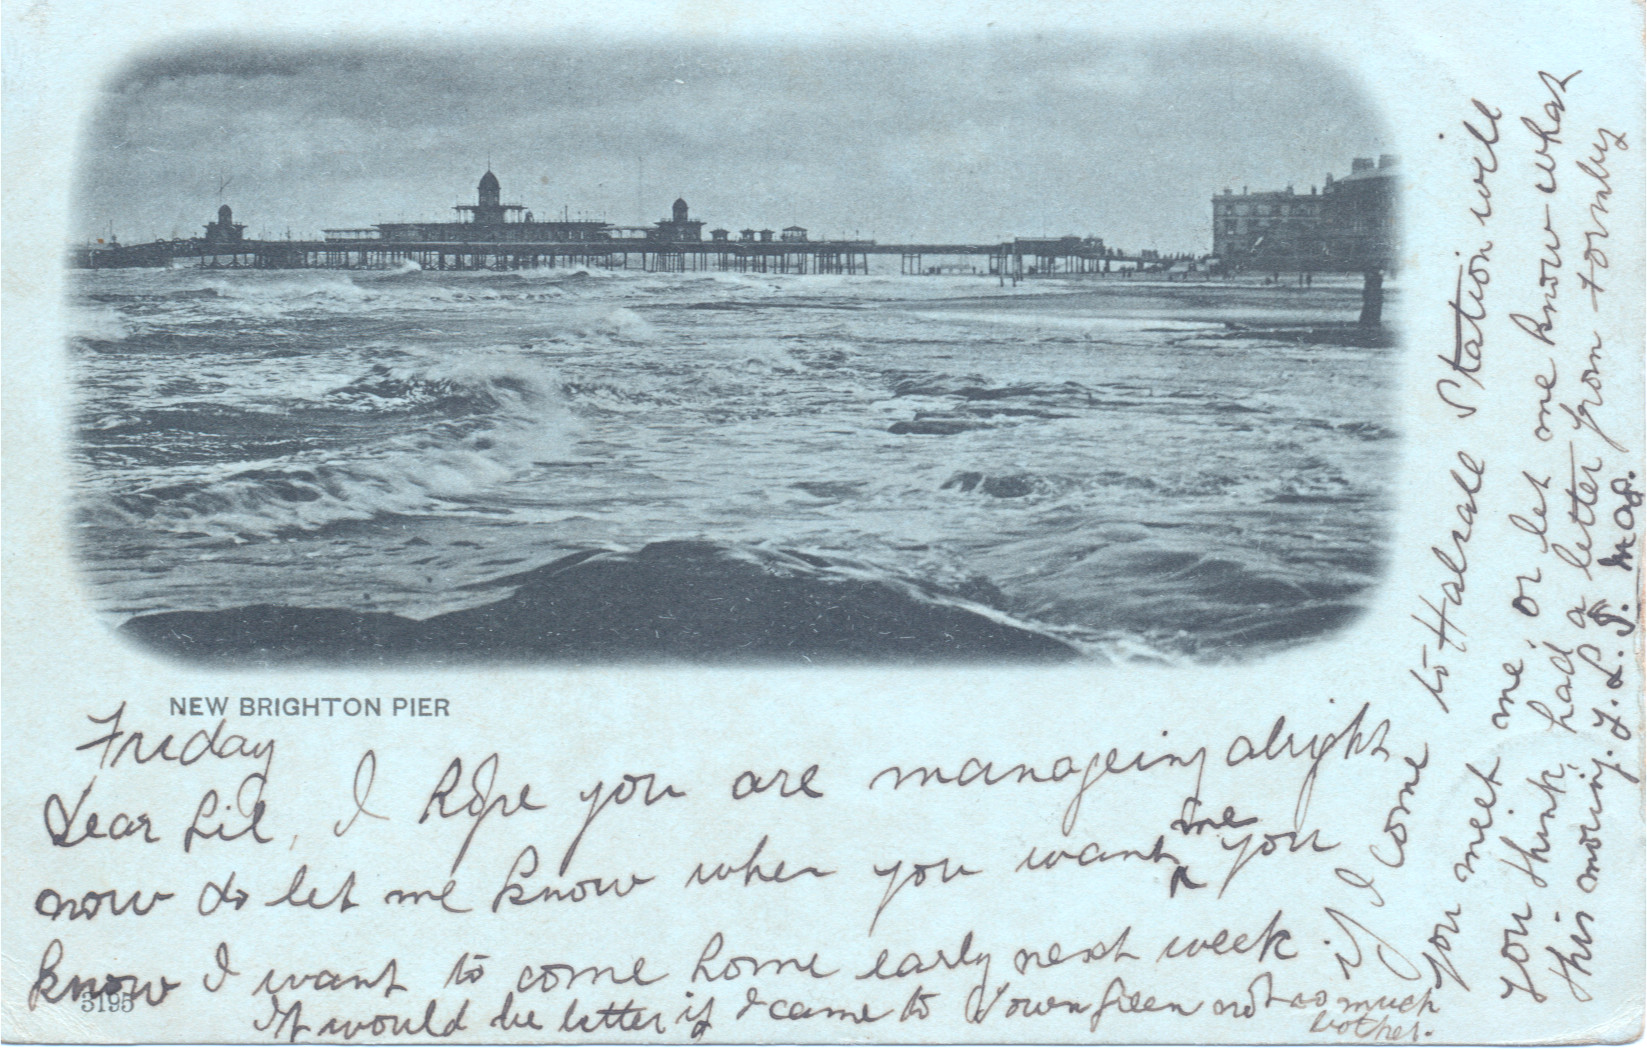 NEW BRIGHTON PIER
Friday
Dear Lil, I hope you are manageing alright
now do let me know when you want me you
know I want to come home early next week
if I come
to Halsall Station will
you meet me, or let me know what
you think, had a letter from
this morning. Y. L. S. Mag.
It would be better if I came to Town Green not so much
bother.
3195